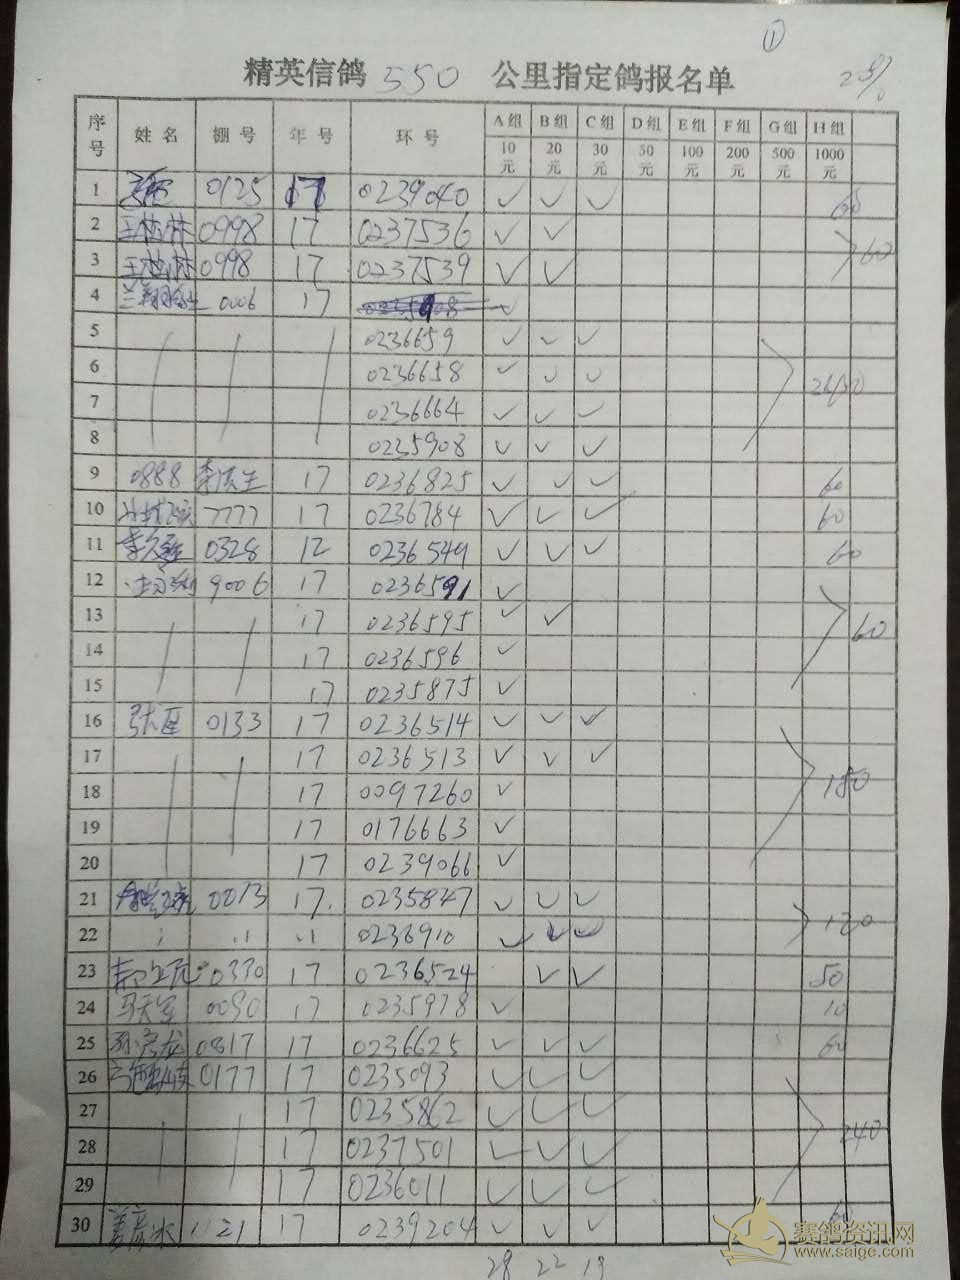 ①
精英信鸽 550 公里指定鸽报名单
序号 姓名 棚号 年号 环号 A组 10元 B组 20元 C组 30元 D组 50元 E组 100元 F组 200元 G组 500元 H组 1000元
1 0125 17 0239040 ✓ ✓ ✓ 60
2 王桂林 0998 17 0237536 ✓ ✓
3 王桂林 0998 17 0237539 ✓ ✓ 60
4 0006 17 ✓
5 0236659 ✓ ✓ ✓
6 0236658 ✓ ✓ ✓
7 0236664 ✓ ✓ ✓
8 0235908 ✓ ✓ ✓
9 0888 17 0236825 ✓ ✓ ✓ 60
10 7777 17 0236784 ✓ ✓ ✓ 60
11 0328 12 0236549 ✓ ✓ ✓ 60
12 9006 17 0236591 ✓
13 17 0236595 ✓ ✓ 60
14 17 0236596 ✓
15 17 0235875 ✓
16 0133 17 0236514 ✓ ✓ ✓
17 17 0236513 ✓ ✓ ✓
18 17 0097260 ✓ 150
19 17 0176663 ✓
20 17 0239066 ✓
21 0013 17 0235847 ✓ ✓ ✓
22 0236910 ✓ ✓ ✓ 120
23 0330 17 0236524 ✓ ✓ 50
24 马天军 0090 17 0235978 ✓ 10
25 孙彦龙 0817 17 0236625 ✓ ✓ ✓ 60
26 0177 17 0235093 ✓ ✓ ✓
27 17 0235862 ✓ ✓ ✓
28 17 0237501 ✓ ✓ ✓ 240
29 17 0236011 ✓ ✓ ✓
30 1121 17 0239204 ✓ ✓ ✓
28 22 19
赛鸽资讯网
www.saige.com